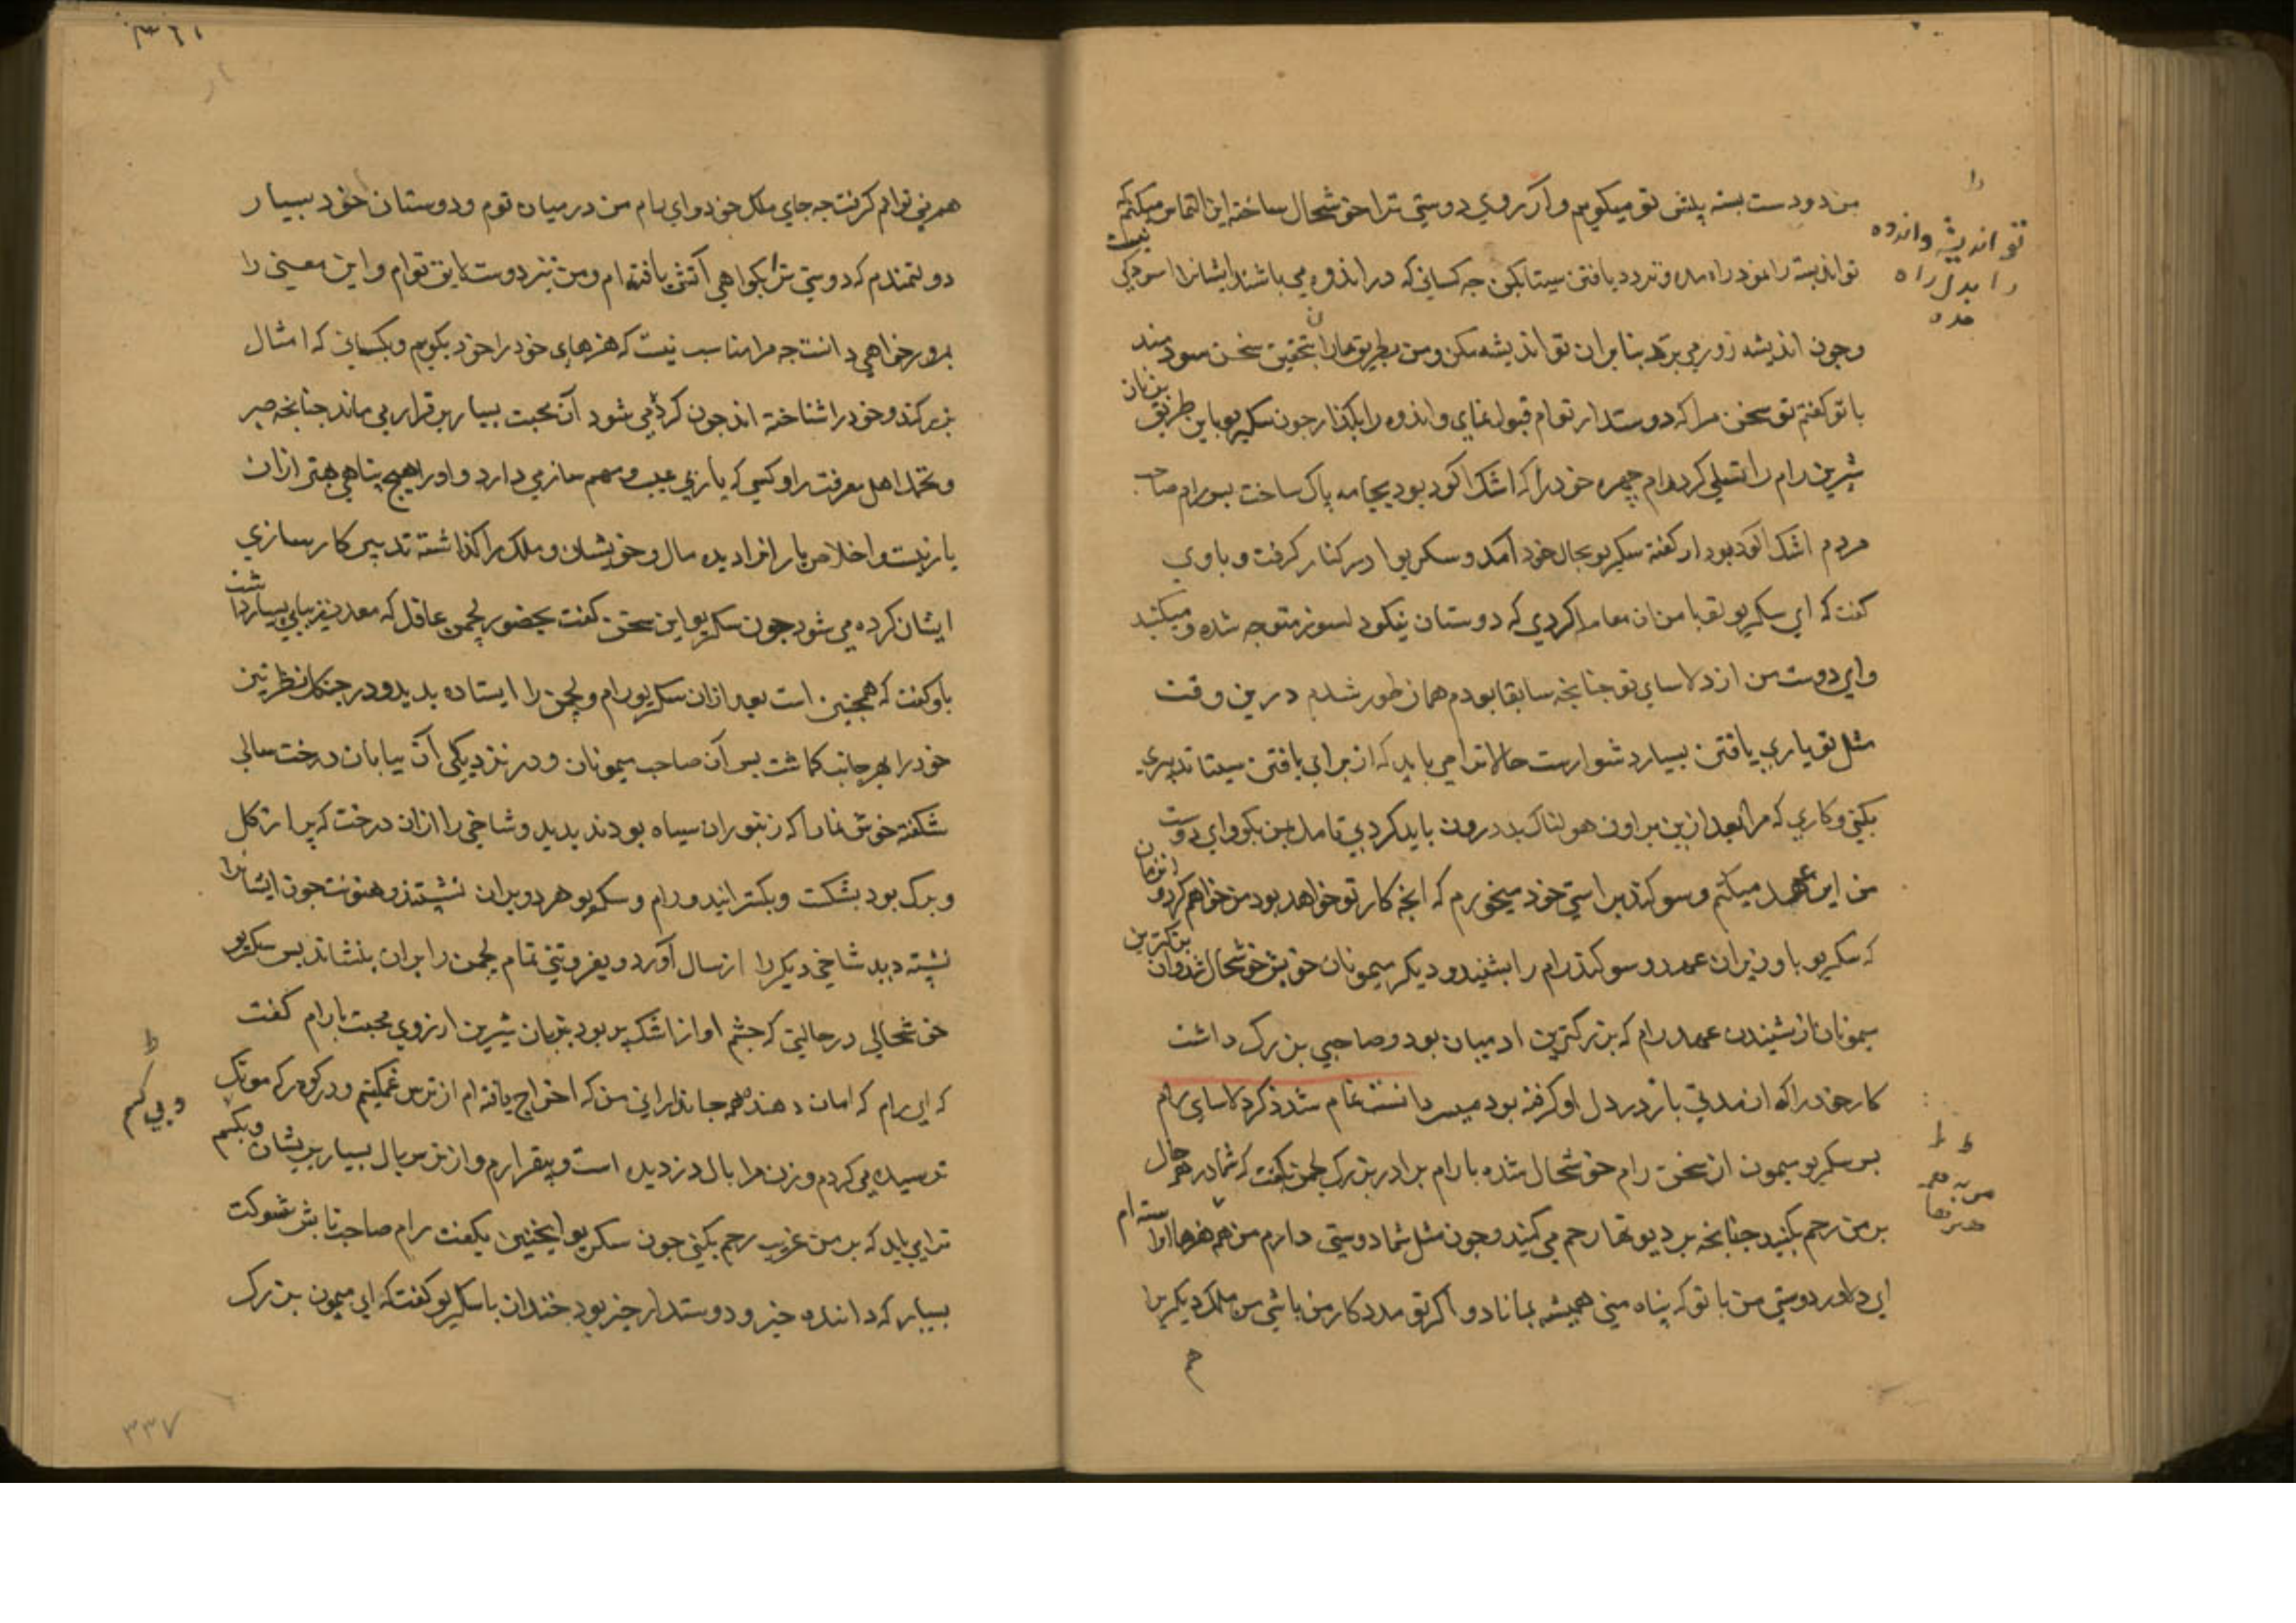 من دو دست بسته پیش تو میکویم و از روی دوستی ترا خوشحال ساخته این التماس میکنم که
تو اندیشه را بخود راه مده و تردد یافتن سیتا بکن جه کسانی که در اندوه می باشند ایشانرا اسودکی نیست
وجون اندیشه زور می برد بنابران تو اندیشه مکن ومن بطریق یاران بتحقیق سخن سودمند
با تو کفتم تو سخن مرا که دوستدار توام قبول نمای واندوه را بکذار جون سکریو باین طریق بزبان
شیرین رام را تسلی کرد رام چهره خود را که اشک الود بود بجامه پاک ساخت بس رام صاحب
مردم اشک الود بود از کفته سکریو بحال خود آمد و سکریو را در کنار کرفت و با وی
کفت که ای سکریو تو با من ان معامله کردی که دوستان نیکو دلسوز متوجه شده میکنند
وای دوست من از دلاسای تو جنانجه سابقا بودم همان طور شدم درین وقت
مثل تو یاری یافتن بسیار دشوارست حالا ترا می باید که از برای یافتن سیتا تدبیری
بکنی وکاری که مرا بعد ازین براون هولناک بد درون باید کرد بی تامل بمن بکو وای دوست
من این عهد میکنم و سوکند براستی خود میخورم که انجه کار تو خواهد بود من خواهم کرد و انزمان
که سکریو با وزیران عهد و سوکند رام را بشنید و دیکر میمونان خویش خوشحال شد وان بزرکترین
میمونان از شنیدن عهد رام که بزرکترین ادمیان بود و صاحبی بزرک داشت
کار خود را که از مدتی باز در دل او کرفته بود میسر دانست تمام شد ذکر دلاسای رام
بس سکریو میمون از سخن رام خوشحال شده با رام برادر بزرک لجمن بکفت که شما در هر حال
بر من رحم بکنید جنانجه بر دیوتها رحم می کنید وجون مثل شما دوستی دارم من همه هنرها آراسته ام
ای دلاور دوستی من با تو که پناه منی همیشه بماناد و اکر تو مددکار من باشی من ملک دیکر را
هم
را
تو اندیشه واندوه
را بدل راه
مده
هم می توانم کرفت جه جای ملک خود وای رام من درمیان قوم ودوستان خود بسیار
دولتمندم که دوستی ترا بکواهی آتش یافته ام ومن نیز دوست لایق توام واین معنی را
بمرور خواهی دانست جه مرا مناسب نیست که هنرهای خود را خود بکویم وبکسانی که امثال
بزرکند وخود را شناخته اند جون کرده می شود آن محبت بسیار برقرار می ماند جنانجه صبر
وتحمل اهل معرفت را وکسی که یاری بی عیب وسهم سازی دارد واو را هیج پناهی بهتر ازان
یار نیست واخلاص یار را فرا دیده مال وخویشان وملک را کذاشته تدبیر کارسازی
ایشان کرده می شود جون سکریو این سخن کفت بحضور لجمن عاقل که معدن زیبایی بسیار داشت
باو کفت که همجنین است بعد ازان سکریو رام ولجمن را ایستاده بدید و در جنکل نظر تیز
خود را بهر جانب کماشت بس آن صاحب میمونان ودر نزدیکی آن بیابان درخت سالی
شکفته خوش نما را که زنبوران سیاه بودند بدید وشاخی را ازان درخت که پر از کل
وبرک بود بشکست وبکسترانید ورام وسکریو هر دو بران نشستند وهنونت جون ایشانرا
نشسته دید شاخی دیکر را از سال آورد وبفروتنی تمام لجمن را بران بنشاند بس سکریو
خوشحالی در حالتی که جشم او از اشک پر بود بزبان شیرین از روی محبت با رام کفت
که ای رام که امان دهنده همه جاندارانی من که اخراج یافته ام از ترس غمکینم ودر کوه رکه موتک
ترسیده می کردم وزن مرا بال دزدیده است وبیقرارم واز ترس بال بسیار پریشان وبیکسم
ترا می باید که بر من غریب رحم بکنی جون سکریو اینجنین بکفت رام صاحب تابش شوکت
بسیار که داننده خیر ودوستدار خیر بود خندان با سکریو کفت که ای میمون بزرک
وبی کسم
۳۳۷